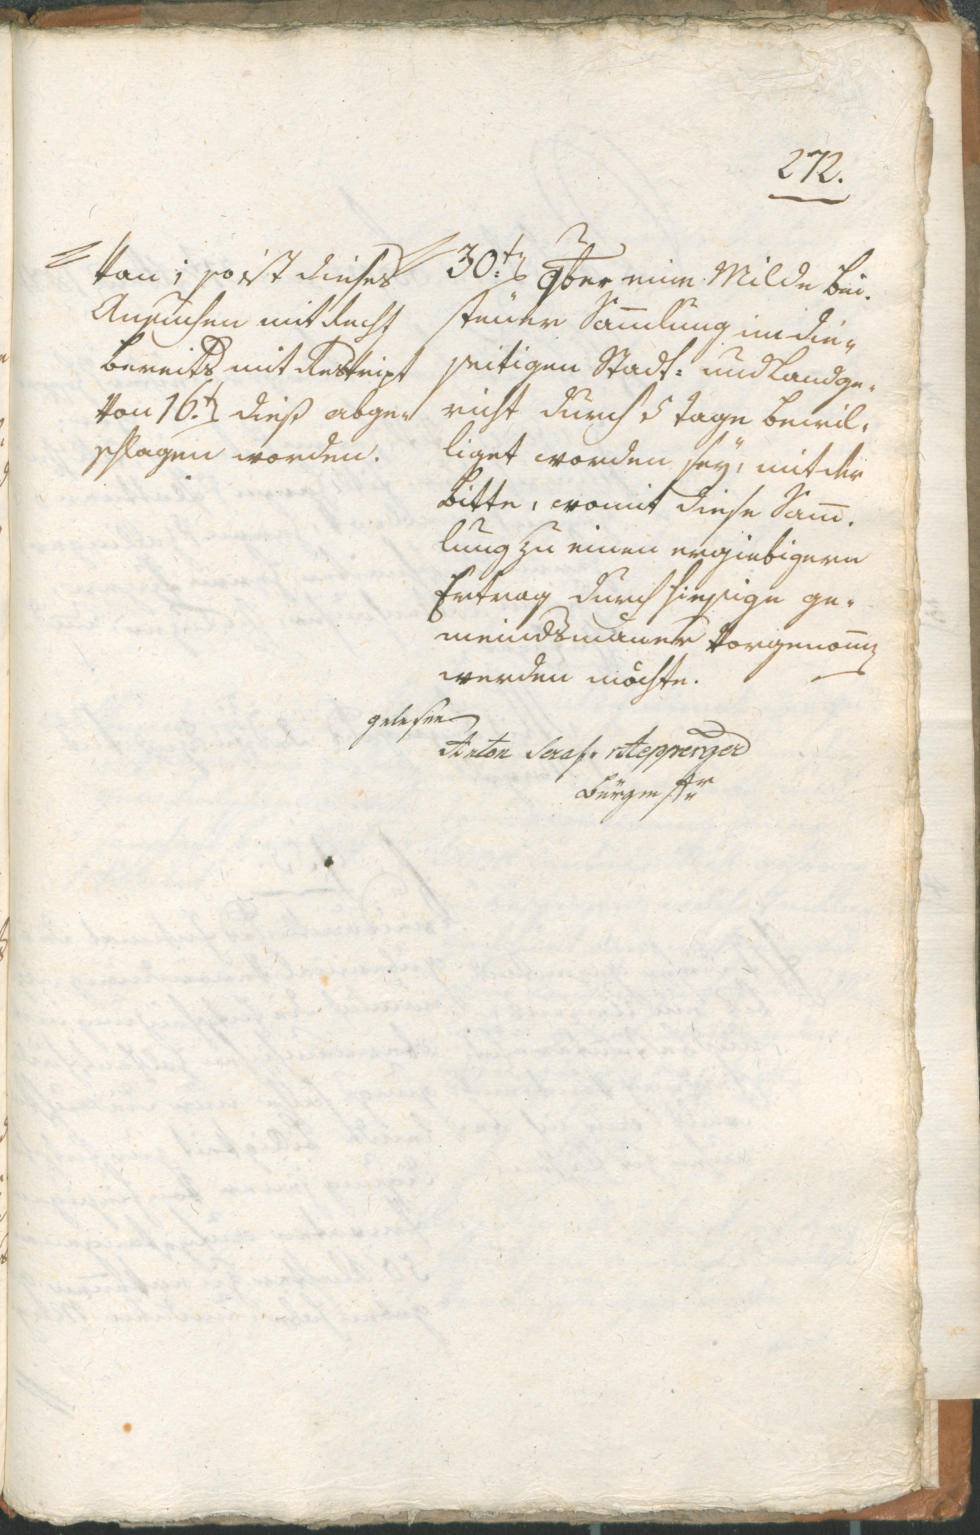 272.
Von; so ist dieses
Ansuchen mit Recht
bereits mit Reskript
von 16t dieß abge„
schlagen worden.
30t 8ber eine Milde Bei„
steüer Sam̄lung im dies„
seitigen Stadt= und Landge„
richt durch 5 tage bewil„
liget worden seÿ, mit der
Bitte, womit diese Sam̄„
lung zu einen ergiebigern
Ertrag durch hiesige ge„
meindsmäner vorgenom̄
werden möchte.
gelesen
Anton Seraf.
Bürgermstr